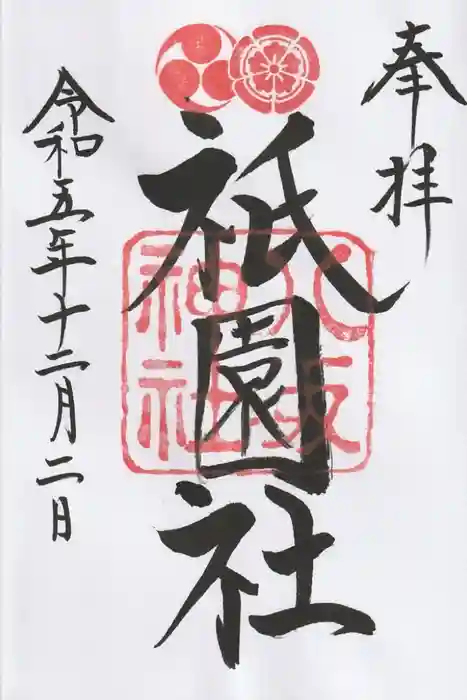 奉拝
祇園社
八坂
神社
令和五年十二月二日